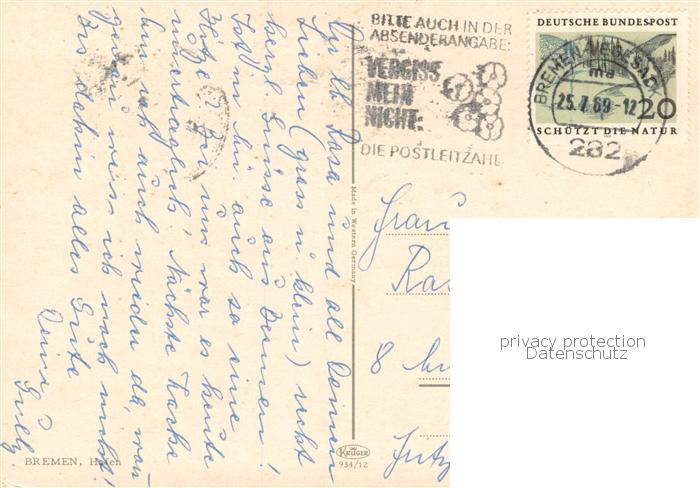 BITTE AUCH IN DER
ABSENDERANGABE:
VERGISS
MEIN
NICHT:
DIE POSTLEITZAHL
DEUTSCHE BUNDESPOST
20
SCHÜTZT DIE NATUR
BREMEN-
25.7.69-12
282
und all Deinen
Lieben (gross u. klein) recht
herzl. Grüsse aus Bremen!
auch so eine
Hitze? Bei uns war es heute
unerträglich! Nächste Woche
bin ich auch wieder da, wann
genau weiss ich noch nicht!
Bis dahin alles Gute
Deine
Made in Western Germany
Frau
8
BREMEN, Hafen
KRÜGER
934/12
privacy protection
Datenschutz